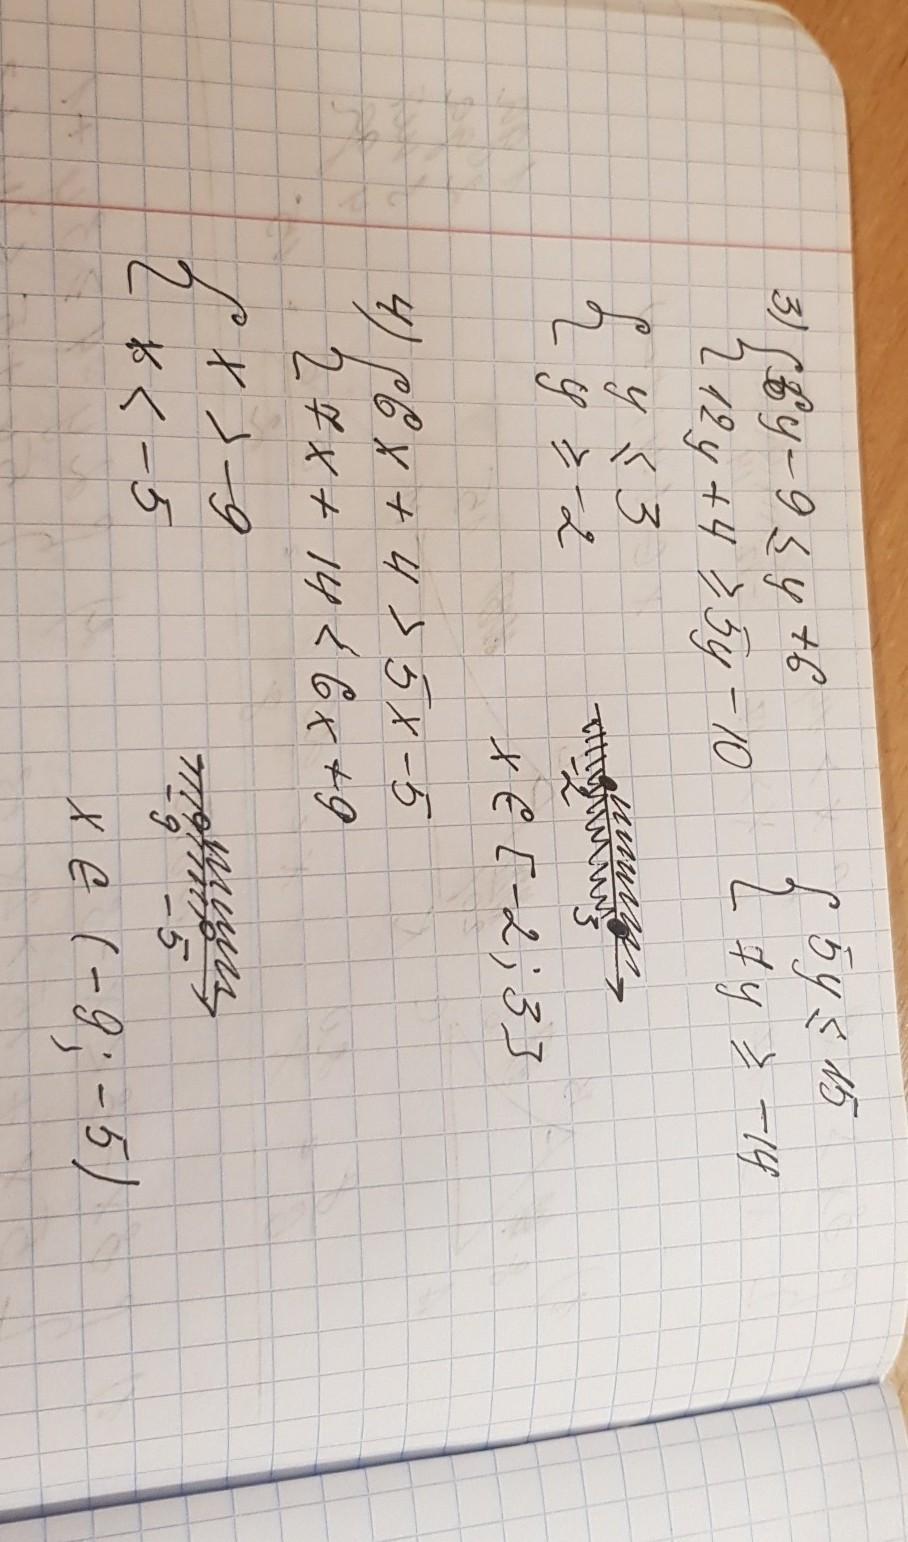 3) { 6y - 9 ≤ y + 6
{ 12y + 4 ≥ 5y - 10
{ 5y ≤ 15
{ 7y ≥ -14
{ y ≤ 3
{ y ≥ -2
-2 3
x ∈ [-2; 3]
4) { 6x + 4 > 5x - 5
{ 7x + 14 < 6x + 9
{ x > -9
{ x < -5
-9 -5
x ∈ (-9; -5)